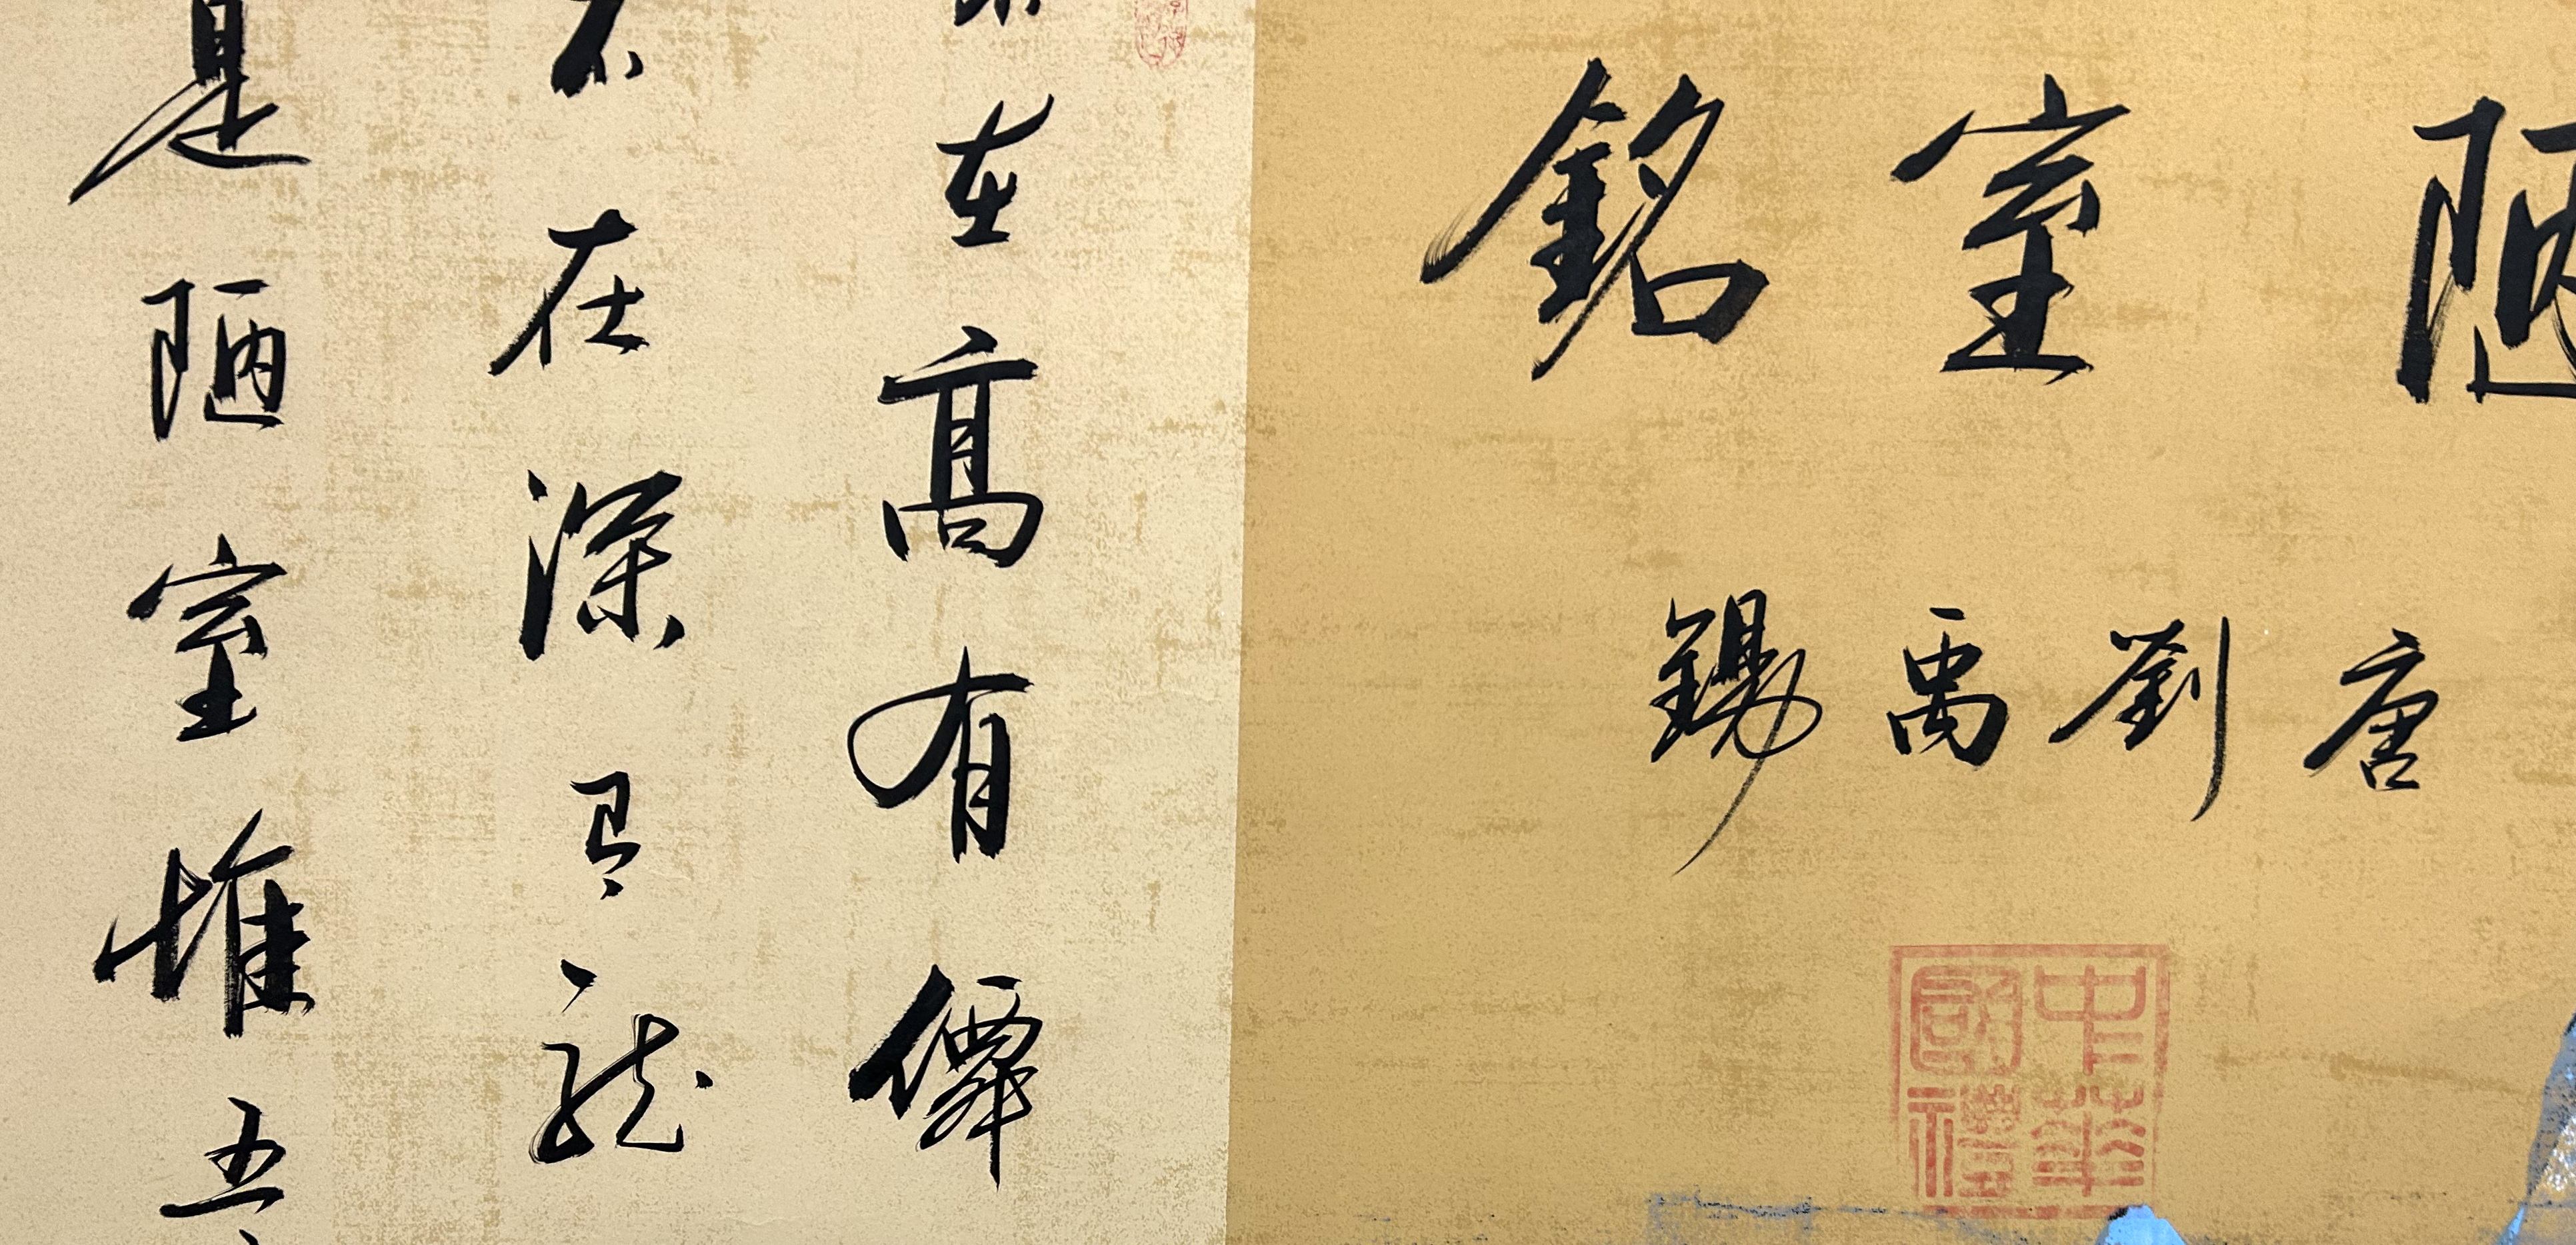 陋室銘
唐劉禹錫
中華國禮
在高有僊
不在深有龍
是陋室惟吾